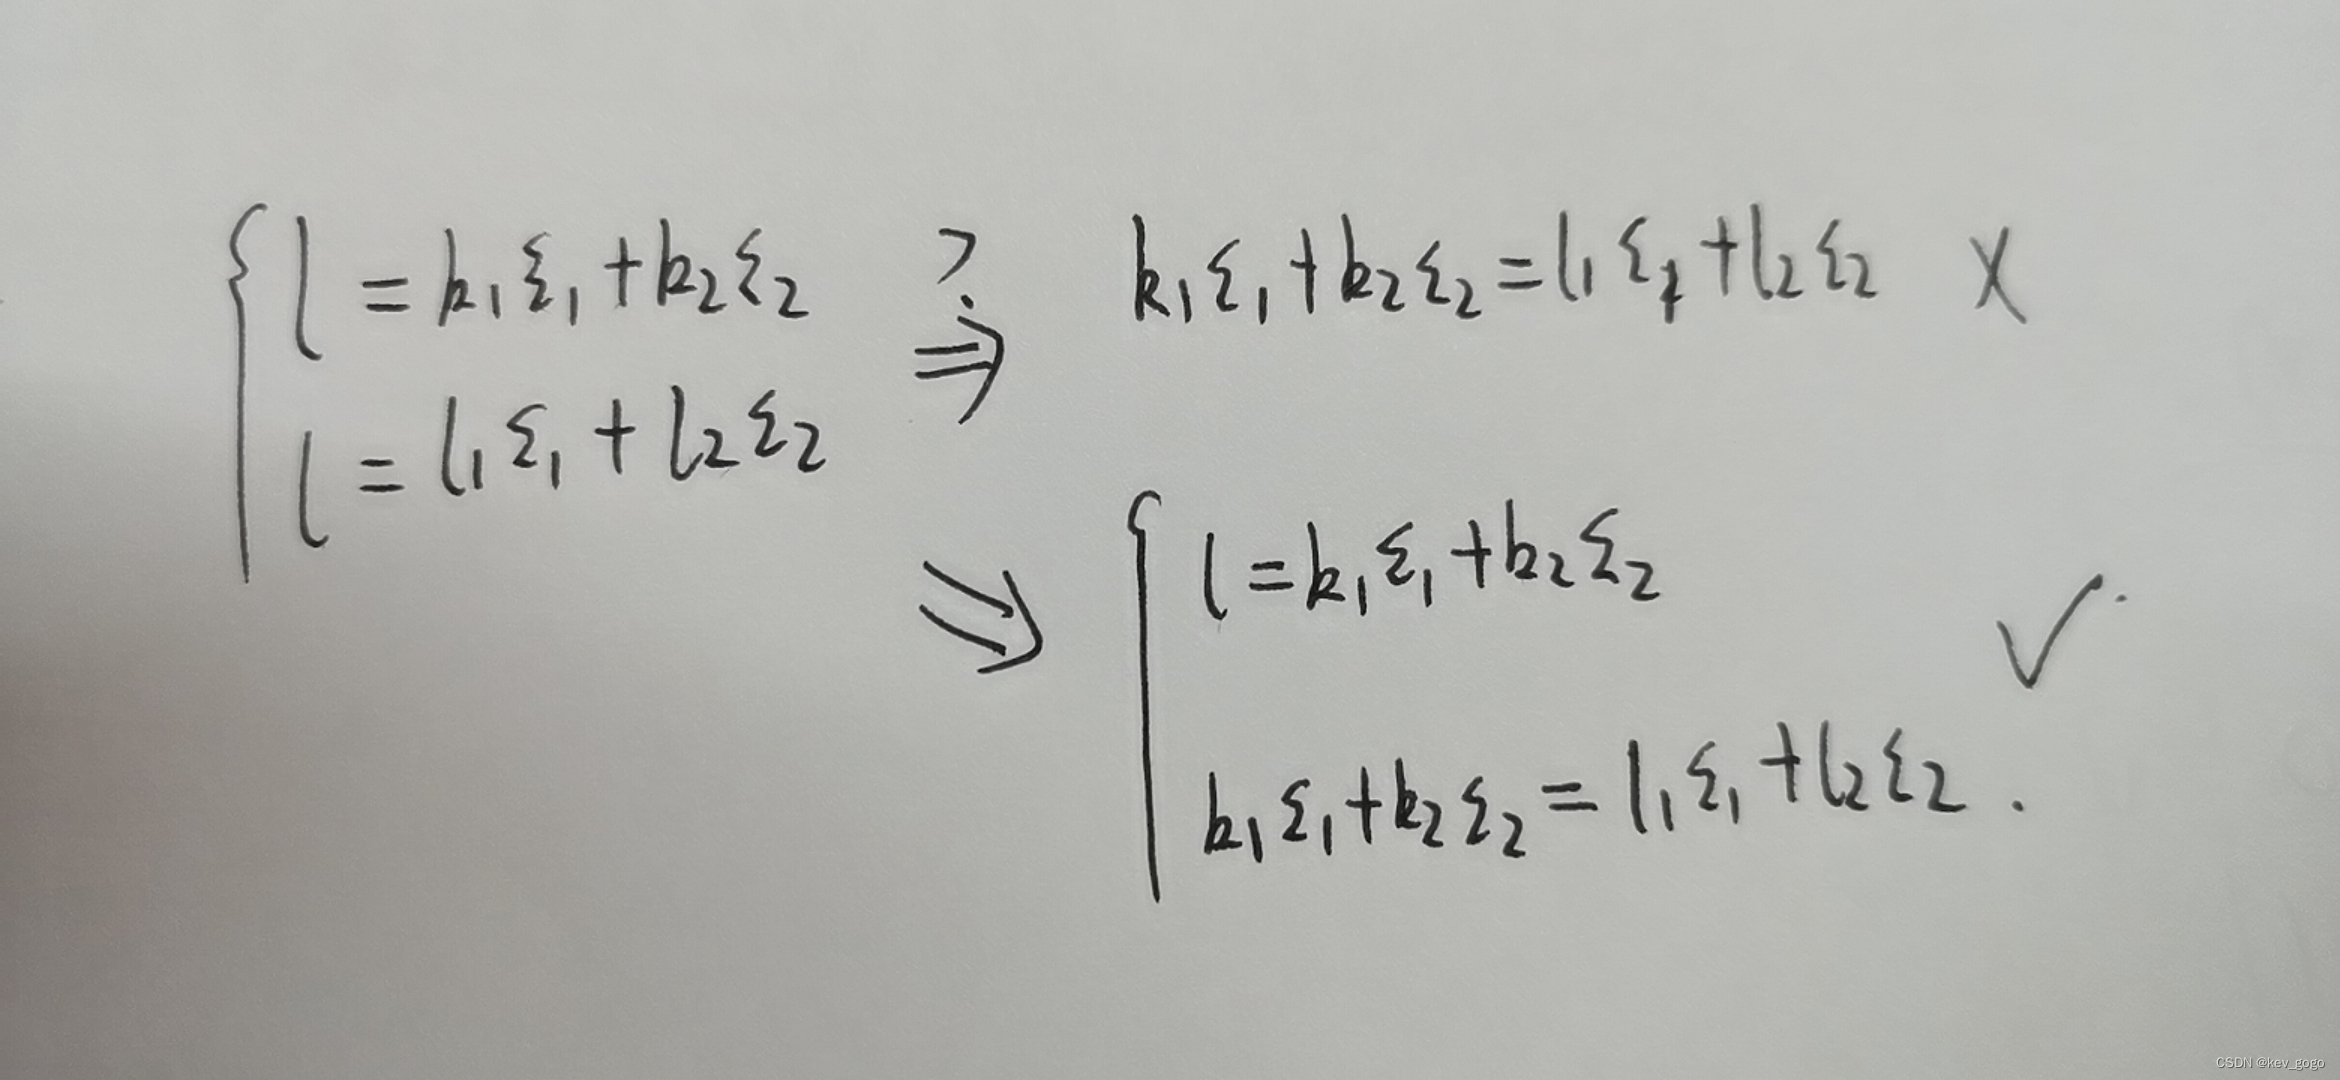 l = k₁ξ₁ + k₂ξ₂
l = l₁ξ₁ + l₂ξ₂
? ⇒
k₁ξ₁ + k₂ξ₂ = l₁ξ₁ + l₂ξ₂ ×
⇒
{ l = k₁ξ₁ + k₂ξ₂
k₁ξ₁ + k₂ξ₂ = l₁ξ₁ + l₂ξ₂ .
✓
CSDN @kev_gogo